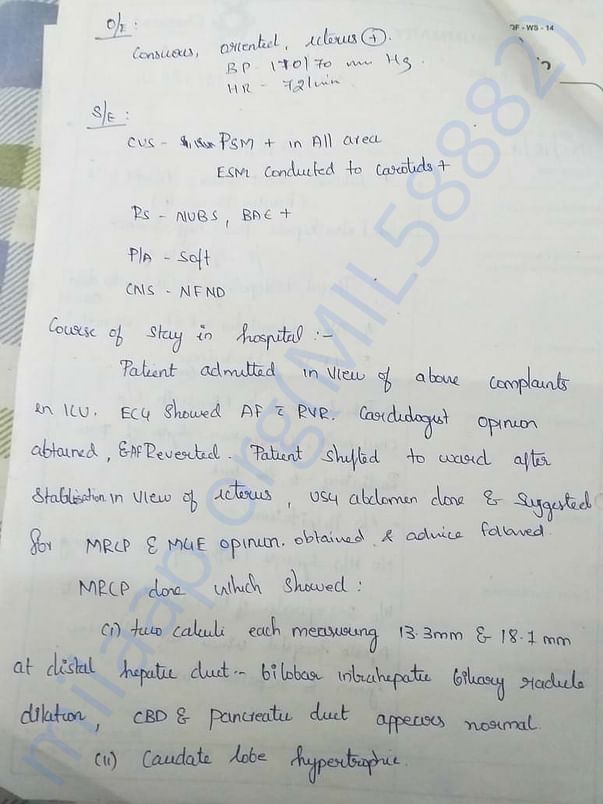 OF - WS - 14
O/E :
Consuous, oriented, icterus (+).
BP - 170/70 mm Hg.
HR - 72/min
S/E :
CVS - PSM + in All area
ESM conducted to carotids +
RS - NVBS, BAE +
P/A - Soft
CNS - NFND
Course of stay in hospital :-
Patient admitted in view of above complaints
in ICU. ECG showed AF c̄ RVR. Cardiologist opinion
obtained, & AF Reverted. Patient shifted to ward after
stabilisation in view of icterus, USG abdomen done & suggested
for MRCP & MGE opinion. obtained & advice followed.
MRCP done which showed :
(i) two calculi each measuring 13.3mm & 18.1 mm
at distal hepatic duct - bilobar intrahepatic biliary radicle
dilation, CBD & pancreatic duct appears normal.
(ii) Caudate lobe hypertrophic.
milaap.org(MIL58882)